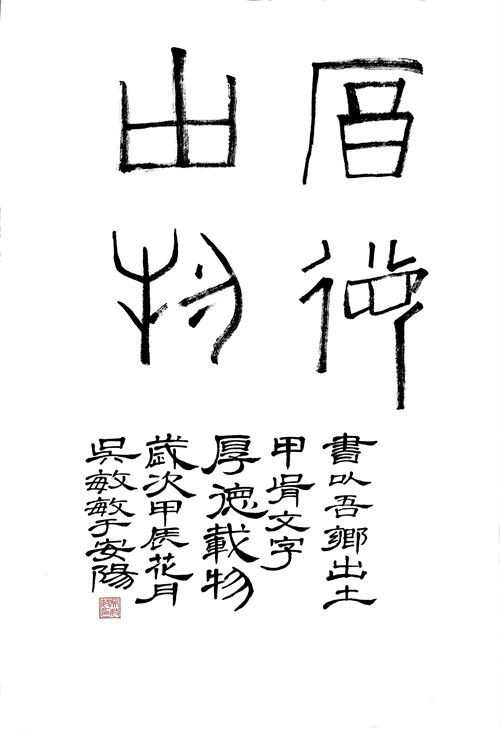 厚德
載物
書以吾鄉出土
甲骨文字
厚德載物
歲次甲辰花月
吳敏敏于安陽